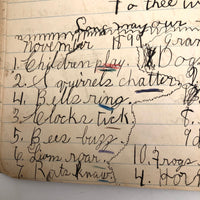 To tree
Sam may our
November 1899 Gran
1. Children play. Dogs
2. Squirrels chatter.
4. Bells ring.
3. Clocks tick.
5. Bees buzz.
6. Lions roar. 10. Frogs
7. Rats knaw 4. Hor